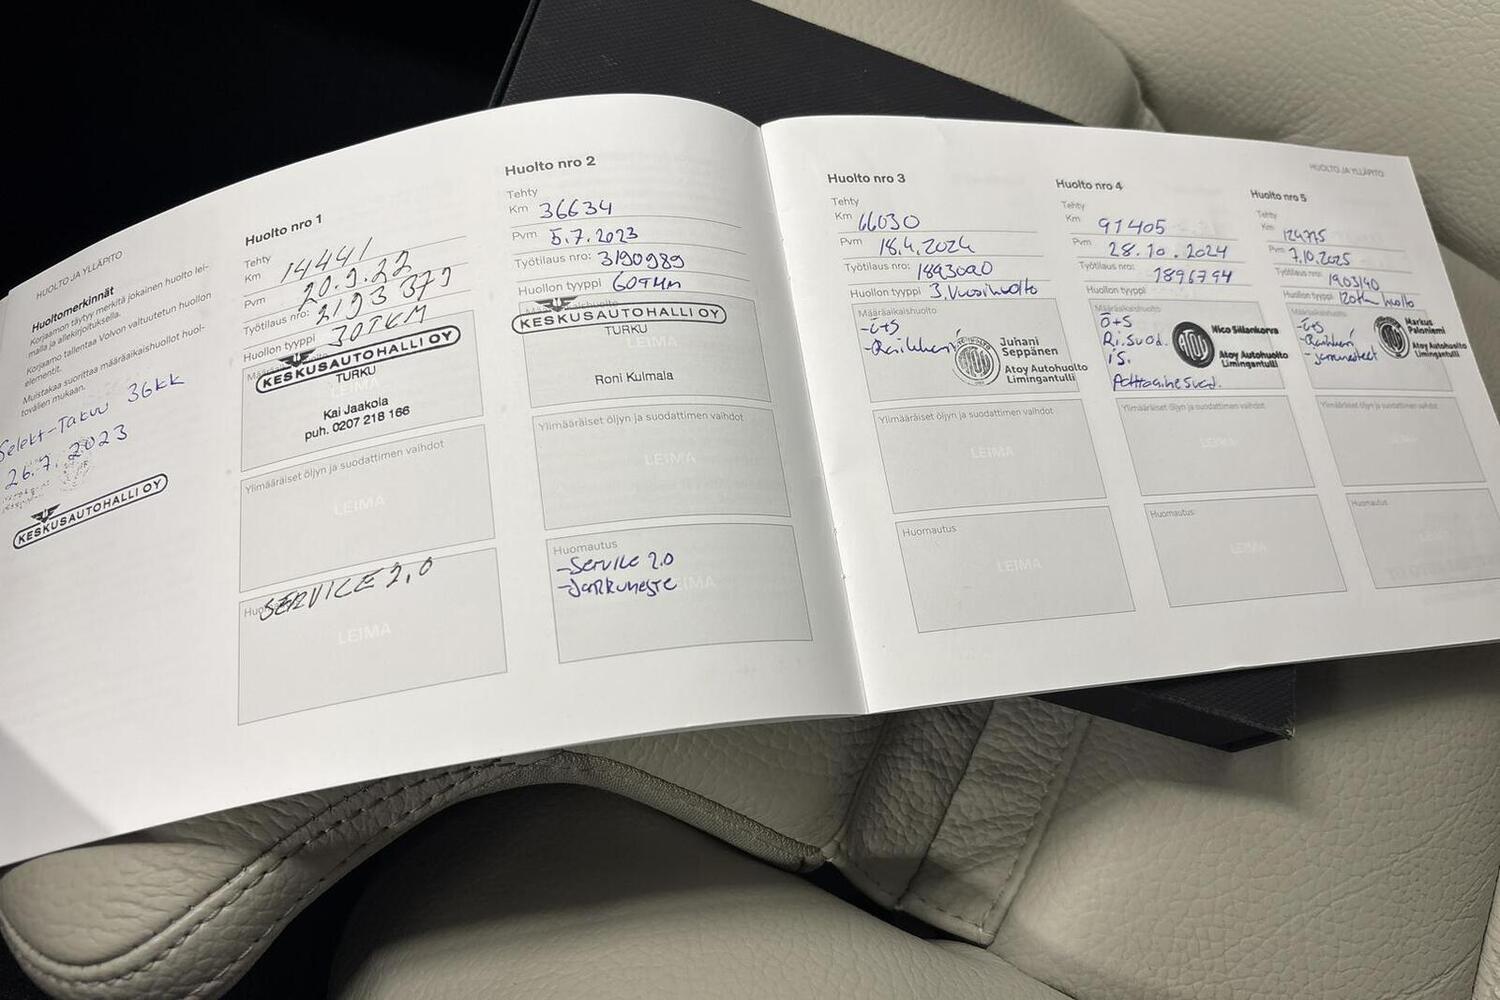 HUOLTO JA YLLÄPITO
Huoltomerkinnät
Korjaamon täytyy merkitä jokainen huolto lei-
malla ja allekirjoituksella.
Korjaamo tallentaa Volvon valtuutetun huollon
elementit.
Muistakaa suorittaa määräaikaishuollot huol-
totövälien mukaan.
Selekt-Takuu 36kk
26.7.2023
KESKUSAUTOHALLI OY
Huolto nro 1
Tehty
Km 14441
Pvm 20.9.22
Työtilaus nro: 2193379
Huollon tyyppi 30TKM
KESKUSAUTOHALLI OY
TURKU
Kai Jaakola
puh. 0207 218 166
Ylimääräiset öljyn ja suodattimen vaihdot
LEIMA
SERVICE 2.0
LEIMA
Huolto nro 2
Tehty
Km 36634
Pvm 5.7.2023
Työtilaus nro: 3190989
Huollon tyyppi 60TKM
Määräaikaishuolto
KESKUSAUTOHALLI OY
TURKU
LEIMA
Roni Kulmala
Ylimääräiset öljyn ja suodattimen vaihdot
LEIMA
Huomautus
-Service 2.0
-Jarruneste
LEIMA
HUOLTO JA YLLÄPITO
Huolto nro 3
Tehty
Km 66030
Pvm 18.4.2024
Työtilaus nro: 1893090
Huollon tyyppi 3.Vuosihuolto
Määräaikaishuolto
-ö+S
Juhani
Seppänen
Atoy Autohuolto
Limingantulli
Ylimääräiset öljyn ja suodattimen vaihdot
LEIMA
Huomautus
LEIMA
Huolto nro 4
Tehty
Km 91405
Pvm 28.10.2024
Työtilaus nro: 1896794
Huollon tyyppi
Määräaikaishuolto
Ö+S
Ri.Suod.
IS.
ATOY
Nico Sillankorva
Atoy Autohuolto
Limingantulli
Ylimääräiset öljyn ja suodattimen vaihdot
LEIMA
Huomautus
LEIMA
Huolto nro 5
Tehty
Km 124775
Pvm 7.10.2025
Työtilaus nro: 1903140
Huollon tyyppi 120tkm huolto
Määräaikaishuolto
-ö+S
-Raikkari
-jarrunesteet
Markus
Paloniemi
Atoy Autohuolto
Limingantulli
Ylimääräiset öljyn ja suodattimen vaihdot
LEIMA
Huomautus
LEIMA